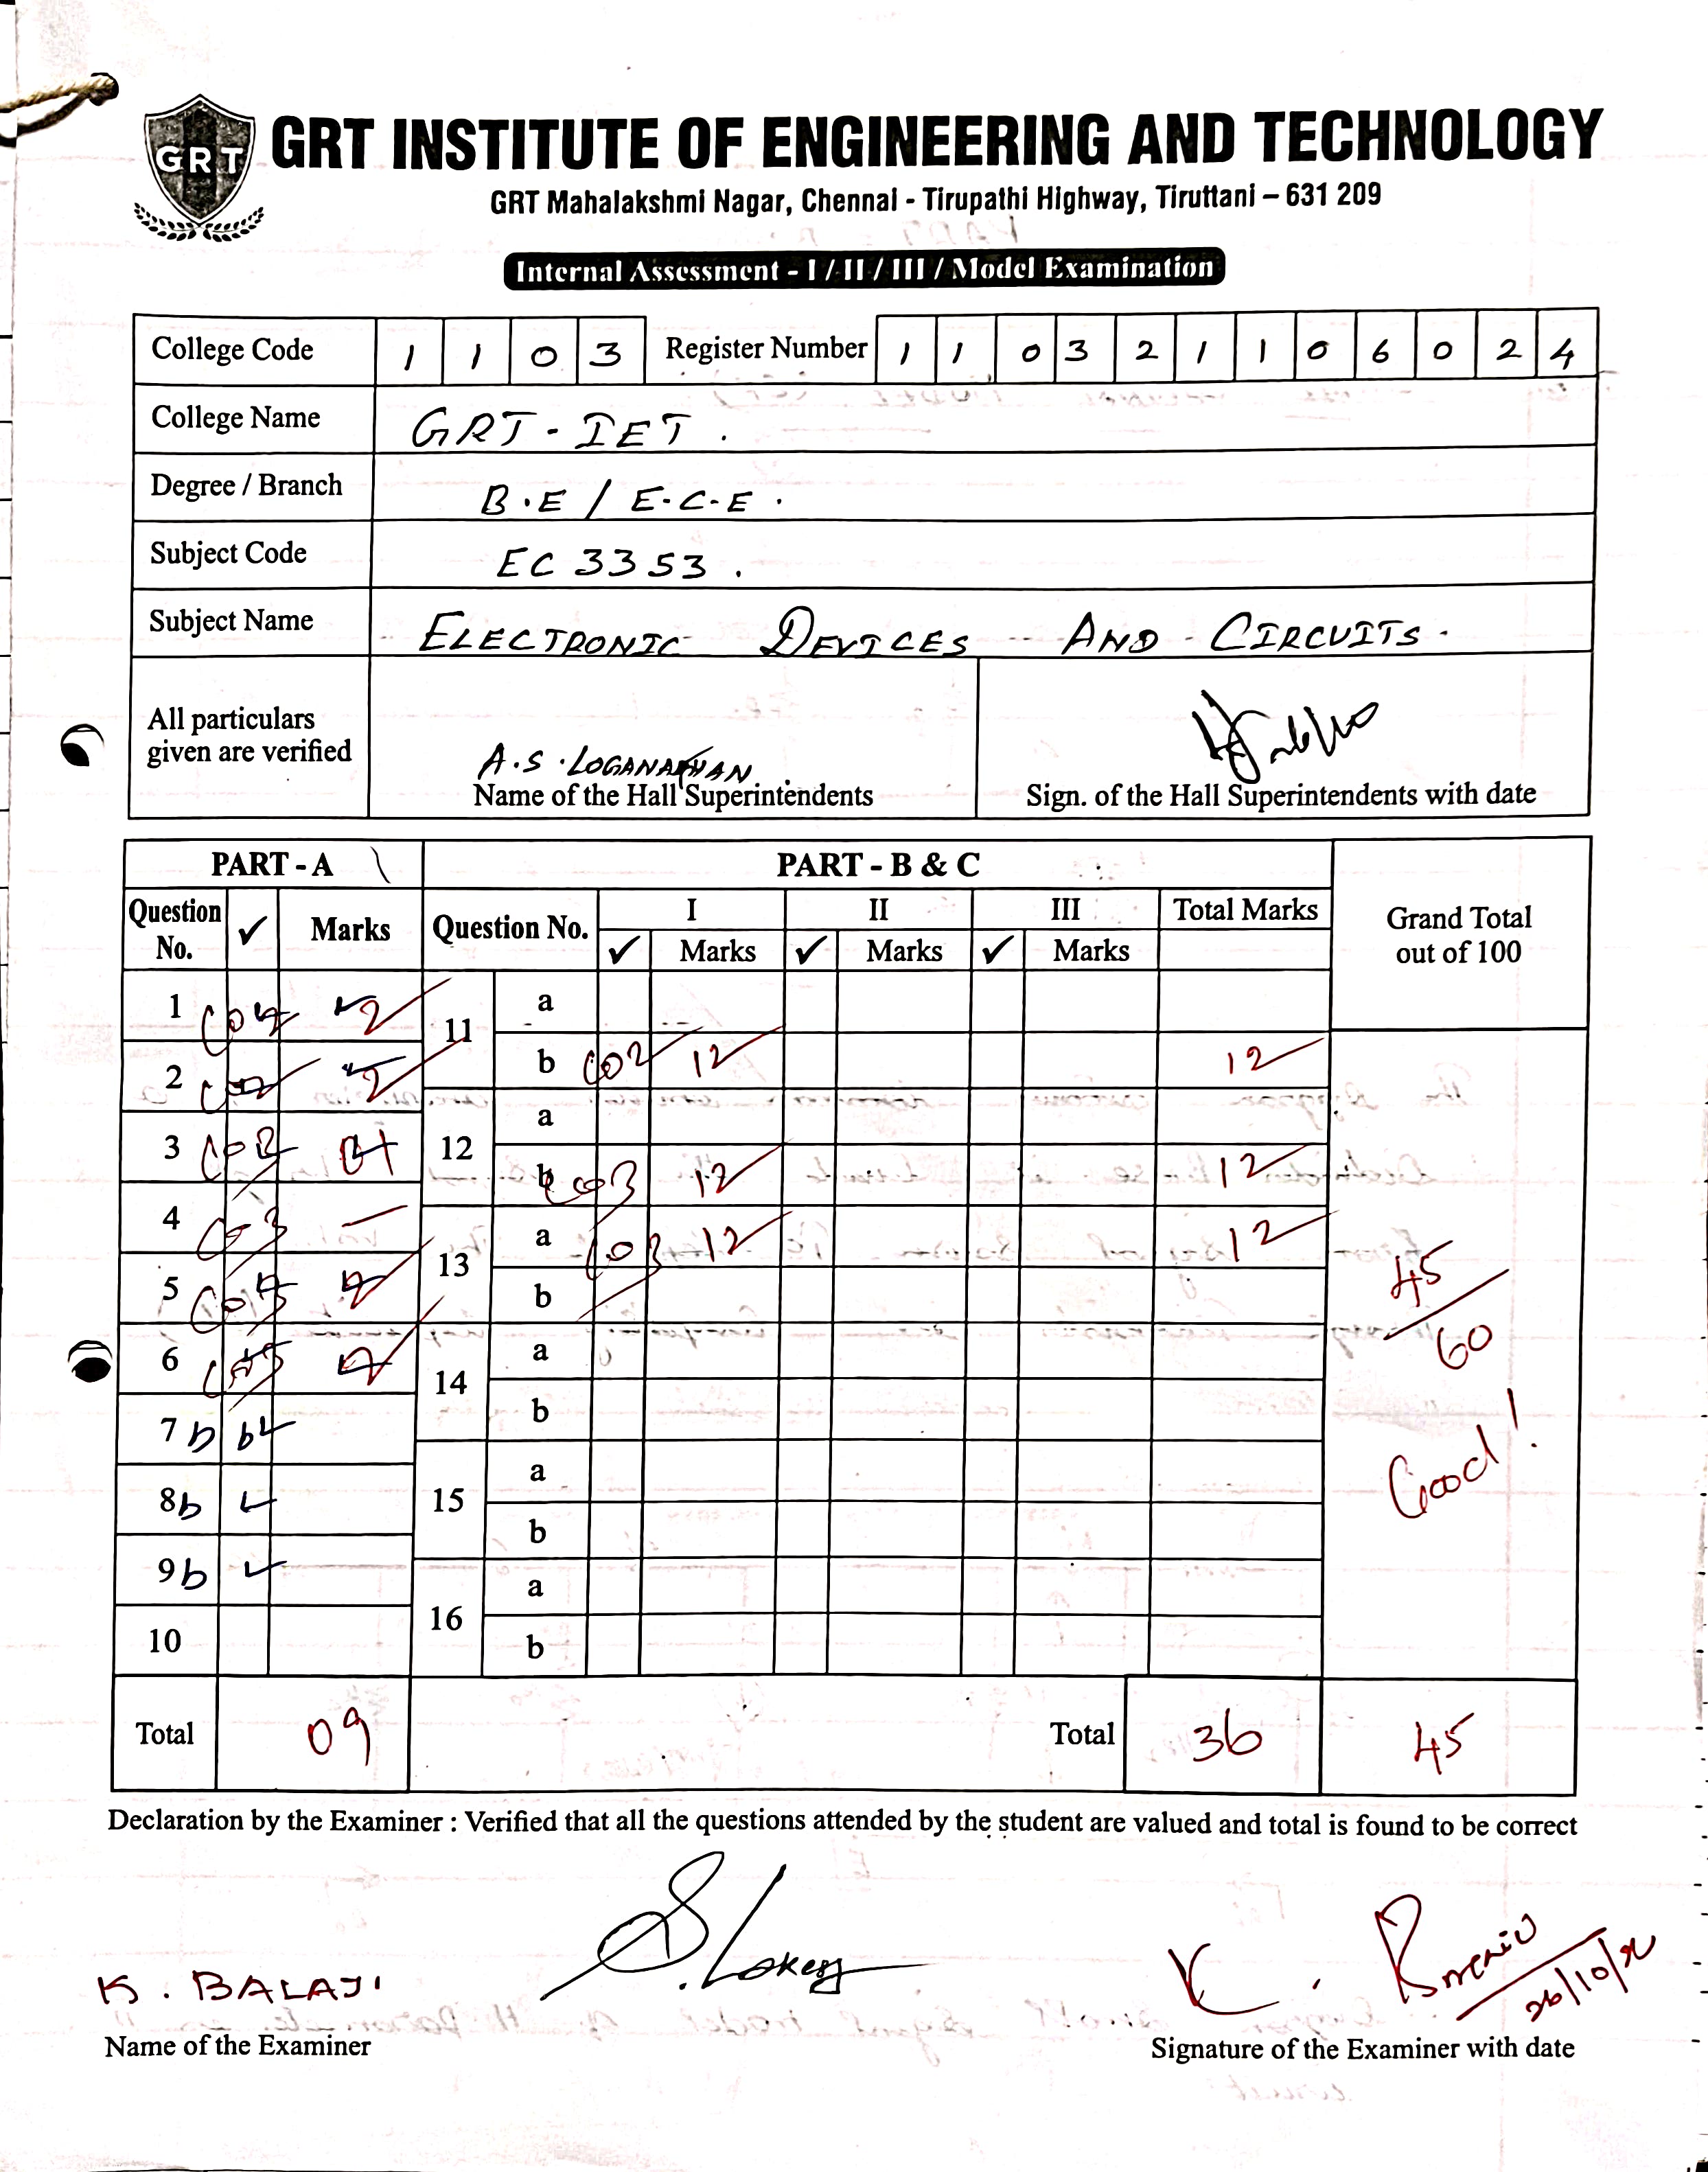 GRT
GRT INSTITUTE OF ENGINEERING AND TECHNOLOGY
GRT Mahalakshmi Nagar, Chennai - Tirupathi Highway, Tiruttani – 631 209
Internal Assessment - I / II / III / Model Examination
College Code 1 1 0 3 Register Number 1 1 0 3 2 1 1 0 6 0 2 4
College Name GRT - IET .
Degree / Branch B.E / E.C.E .
Subject Code EC 3353 .
Subject Name ELECTRONIC DEVICES AND CIRCUITS .
All particulars
given are verified
A.S. LOGANATHAN
Name of the Hall Superintendents
Sign. of the Hall Superintendents with date
PART - A PART - B & C
Question No. ✓ Marks Question No. I II III Total Marks Grand Total out of 100
✓ Marks ✓ Marks ✓ Marks
1 2 11 a
2 2 b CO2 12 12
3 12 a
4 CO3 — b CO3 12 12
5 13 a CO3 12 12
b
6 14 a
7 b b
8 b 15 a
9 b b
10 16 a
b
45
60
Good!
Total 09 Total 36 45
Declaration by the Examiner : Verified that all the questions attended by the student are valued and total is found to be correct
K. BALAJI
S. Lokesh
Name of the Examiner
Signature of the Examiner with date